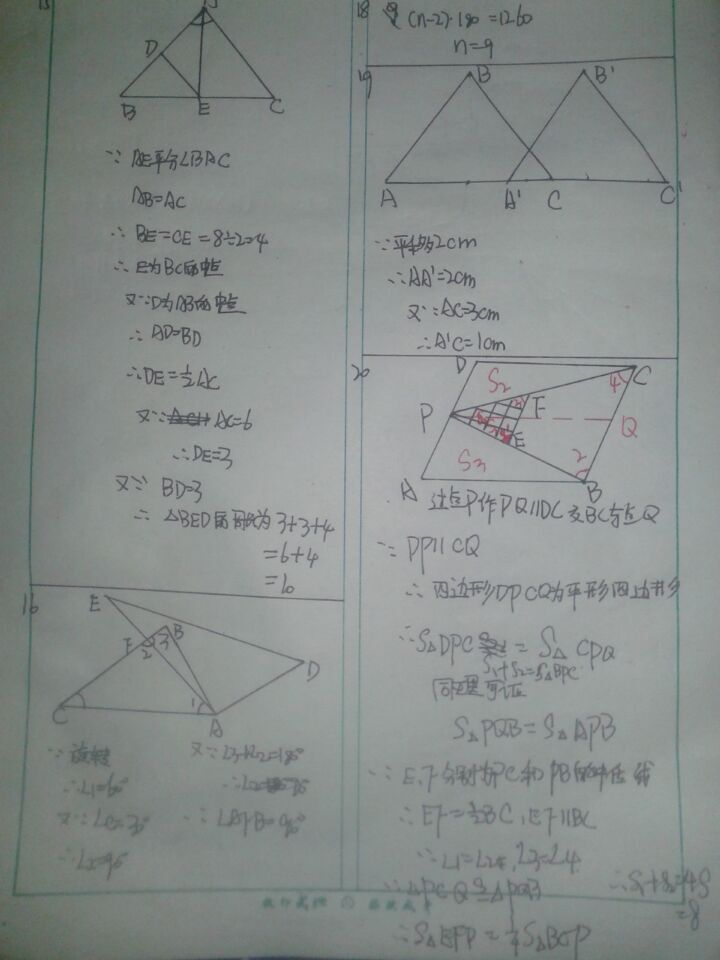 15
D
B E C
∵ AE平分∠BAC
AB=AC
∴ BE=CE=8÷2=4
∴ E为BC的中点
又∵D为AB的中点
∴ AD=BD
∴DE=½AC
又∵ AC=6
∴DE=3
又∵ BD=3
∴ △BED的周长为 3+3+4
=6+4
=10
16
E
B
F 2 3
D
C 1 A
∵ 旋转
∴∠1=60°
又∵∠C=30°
∴∠2=90°
又∵∠3+∠2=180°
∴ ∠AFB=90°
18 (n-2)·180=1260
n=9
19
B B'
A A' C C'
∵平移2cm
∴AA'=2cm
又∵AC=3cm
∴A'C=1cm
20
D C
S2 4
P F Q
E
S3 2
A B
过点P作PQ∥DC交BC与点Q
∵ DP∥CQ
∴ 四边形DPCQ为平形四边形
∴S△DPC = S△CPQ
S1+S2=S△BPC
同理可证
S△PQB=S△APB
∵ E,F分别为PC和PB的中位线
∴ EF=½BC,EF∥BC
∴∠1=∠2,∠3=∠4
∴△PCQ≌△PQB
∴S△EFP=¼S△BCP
=8